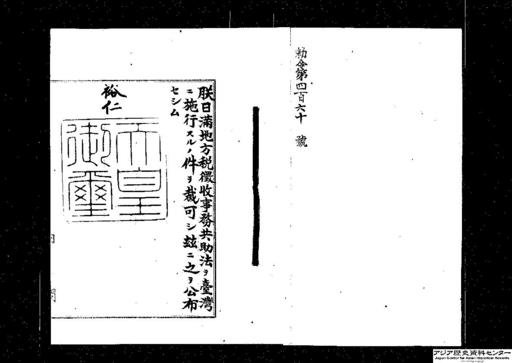 勅令第四百六十號
朕日滿地方税徴收事務共助法ヲ臺灣
ニ施行スルノ件ヲ裁可シ茲ニ之ヲ公布
セシム
裕仁
天皇御璽
アジア歴史資料センター
Japan Center for Asian Historical Records